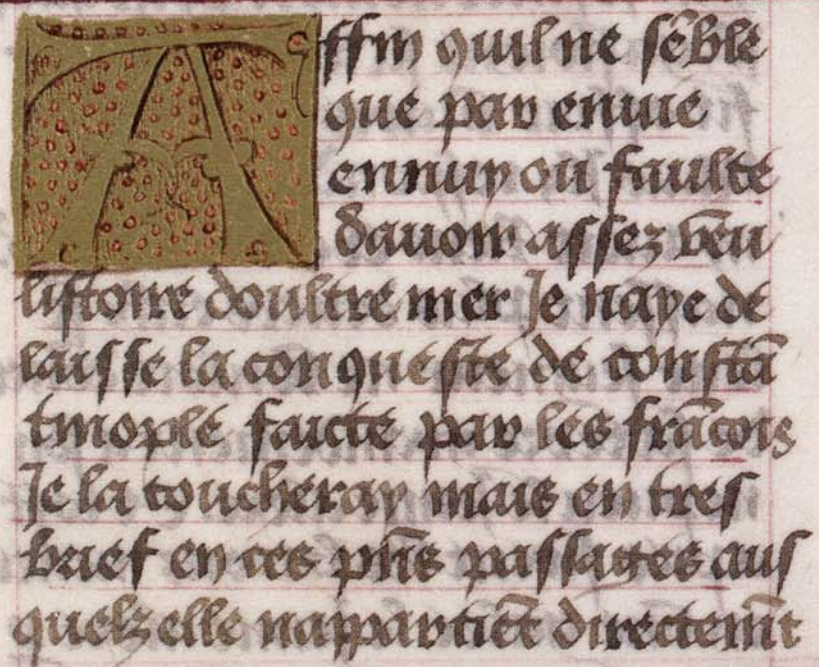 Affin quil ne sēble
que par enuie
ennuy ou faulte
dauoir assez veu
listoire doultre mer Je naye de
laisse la conqueste de constā
tinople faicte par les frācois
Je la toucheray mais en tres
brief en ces pn̄s passages aus
quelz elle nappartiēt directemt̄